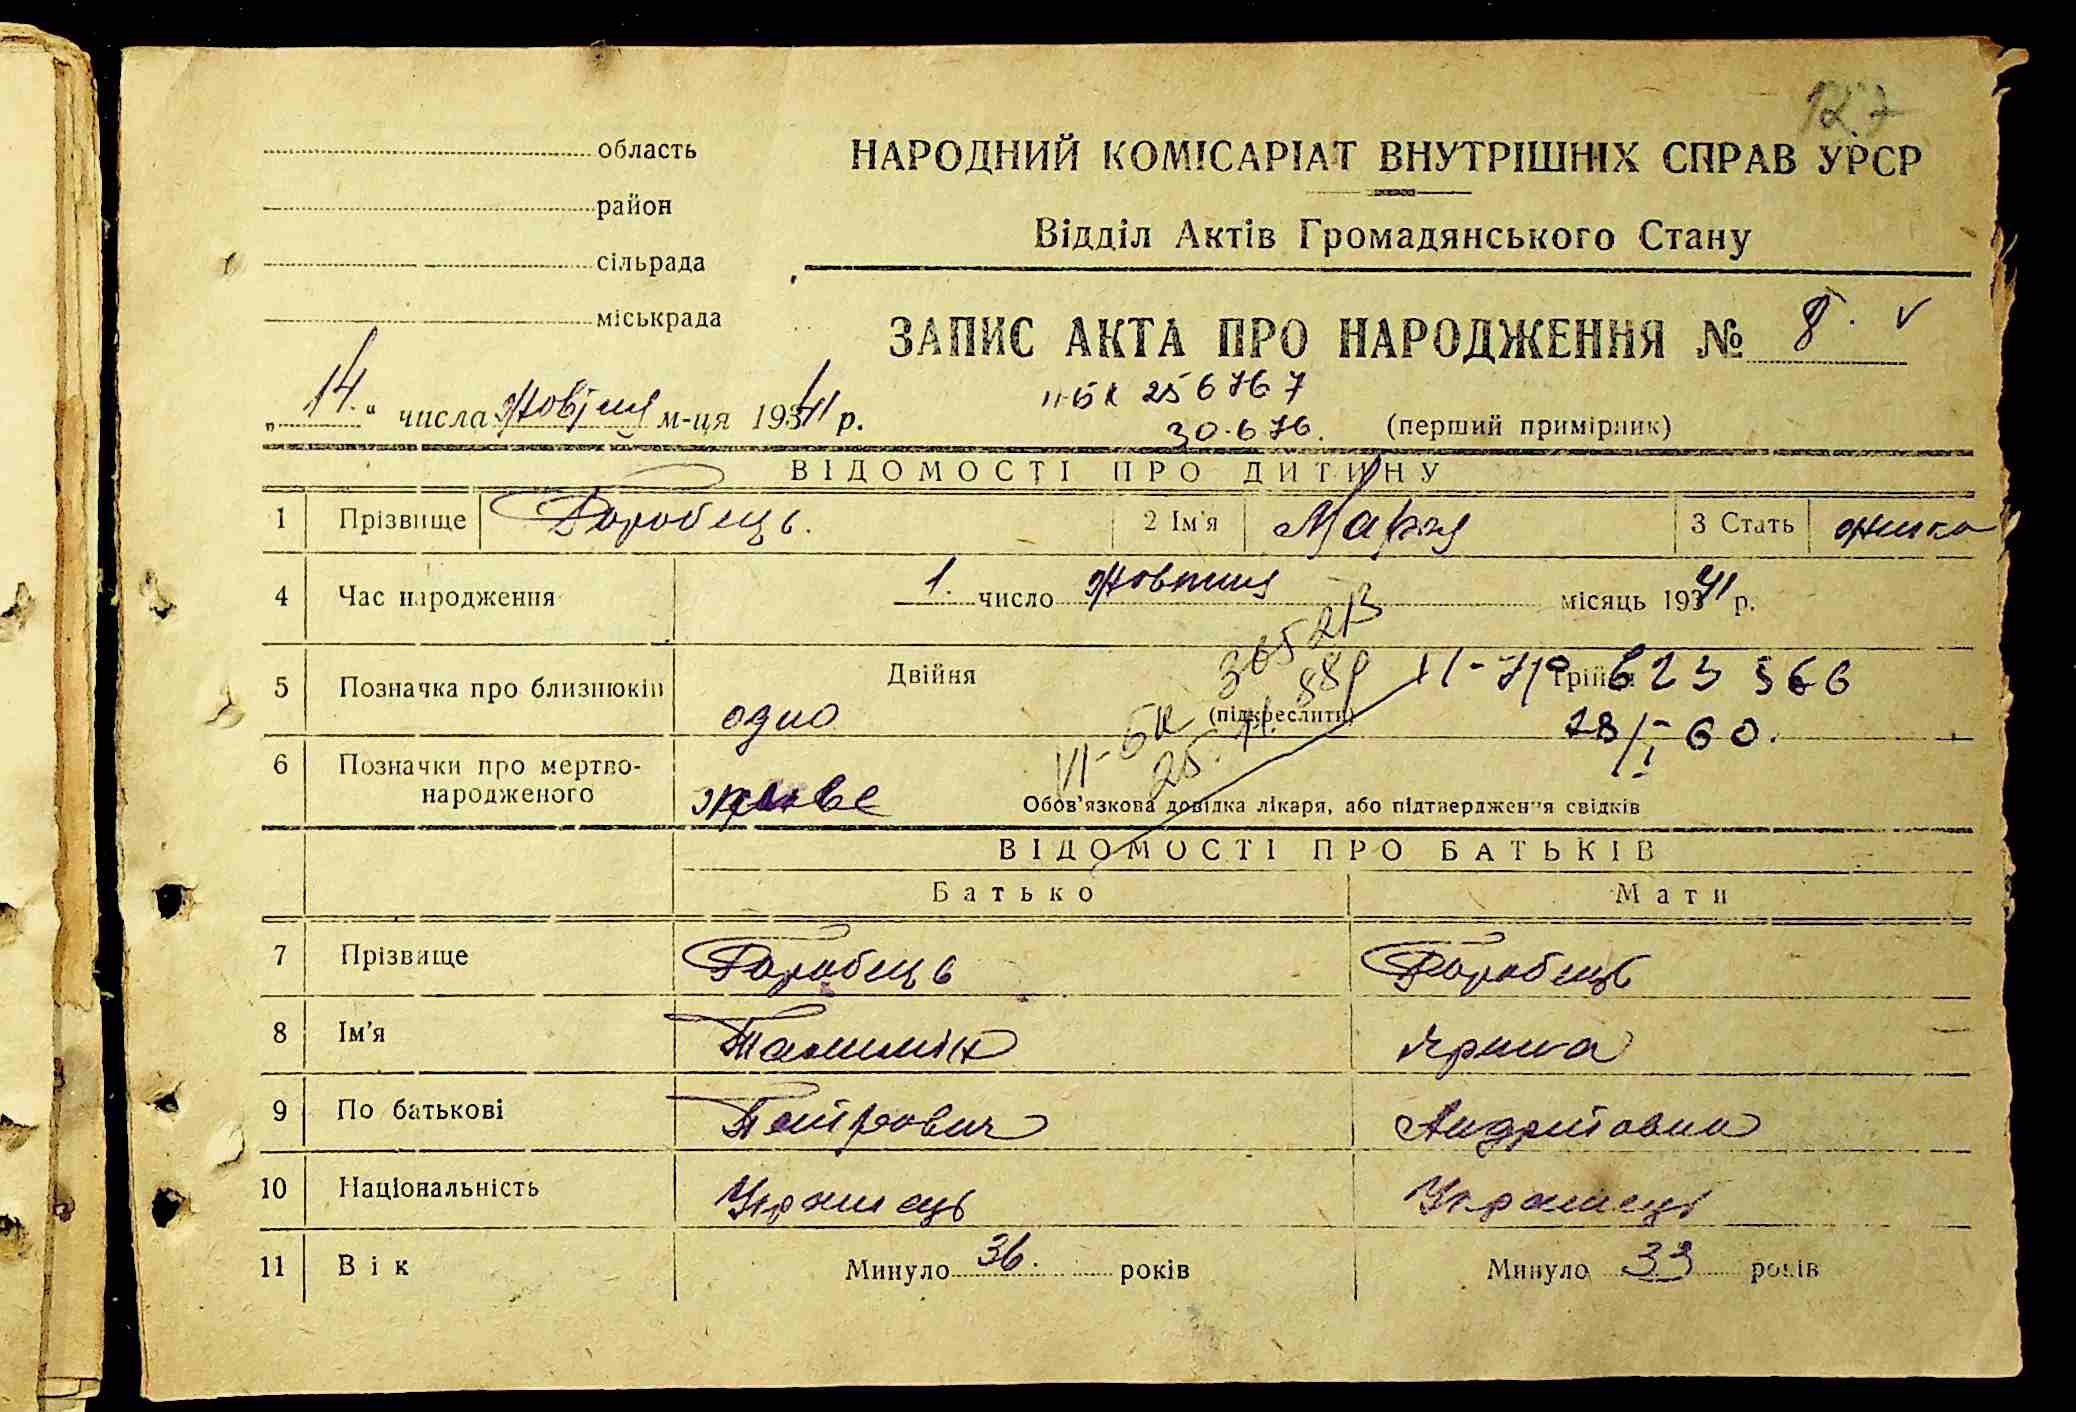 127
область
район
сільрада
міськрада
НАРОДНИЙ КОМІСАРІАТ ВНУТРІШНІХ СПРАВ УРСР
Відділ Актів Громадянського Стану
ЗАПИС АКТА ПРО НАРОДЖЕННЯ № 8.
„14.“ числа жовтня м-ця 1941 р.
II-БК 256767
30.6 76. (перший примірник)
ВІДОМОСТІ ПРО ДИТИНУ
1 Прізвище Горобець. 2 Ім'я Марія 3 Стать жінка
4 Час народження 1. число жовтня місяць 1941 р.
5 Позначка про близнюків одно Двійня (підкреслити) Трійня
365213
VI-БК
XI- 623566
28/I-60.
6 Позначки про мертвонародженого живе Обов'язкова довідка лікаря, або підтвердження свідків
ВІДОМОСТІ ПРО БАТЬКІВ
Батько Мати
7 Прізвище Горобець Горобець
8 Ім'я Ярина
9 По батькові Петрович Андріївна
10 Національність Українець Українець
11 Вік Минуло 36. років Минуло 33 років